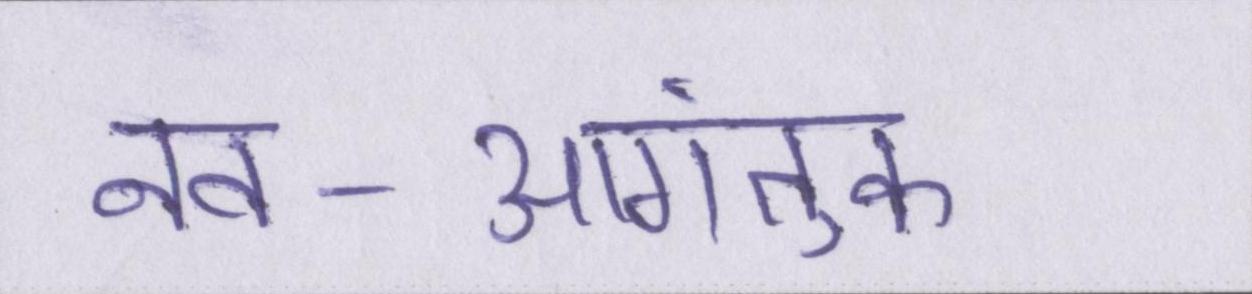 नव-आगंतुक